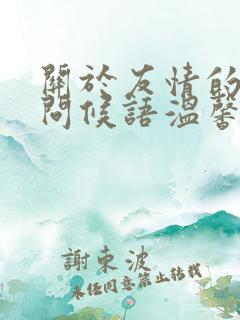 關於友情的
問候語溫馨
謝東波
未經同意禁止轉載